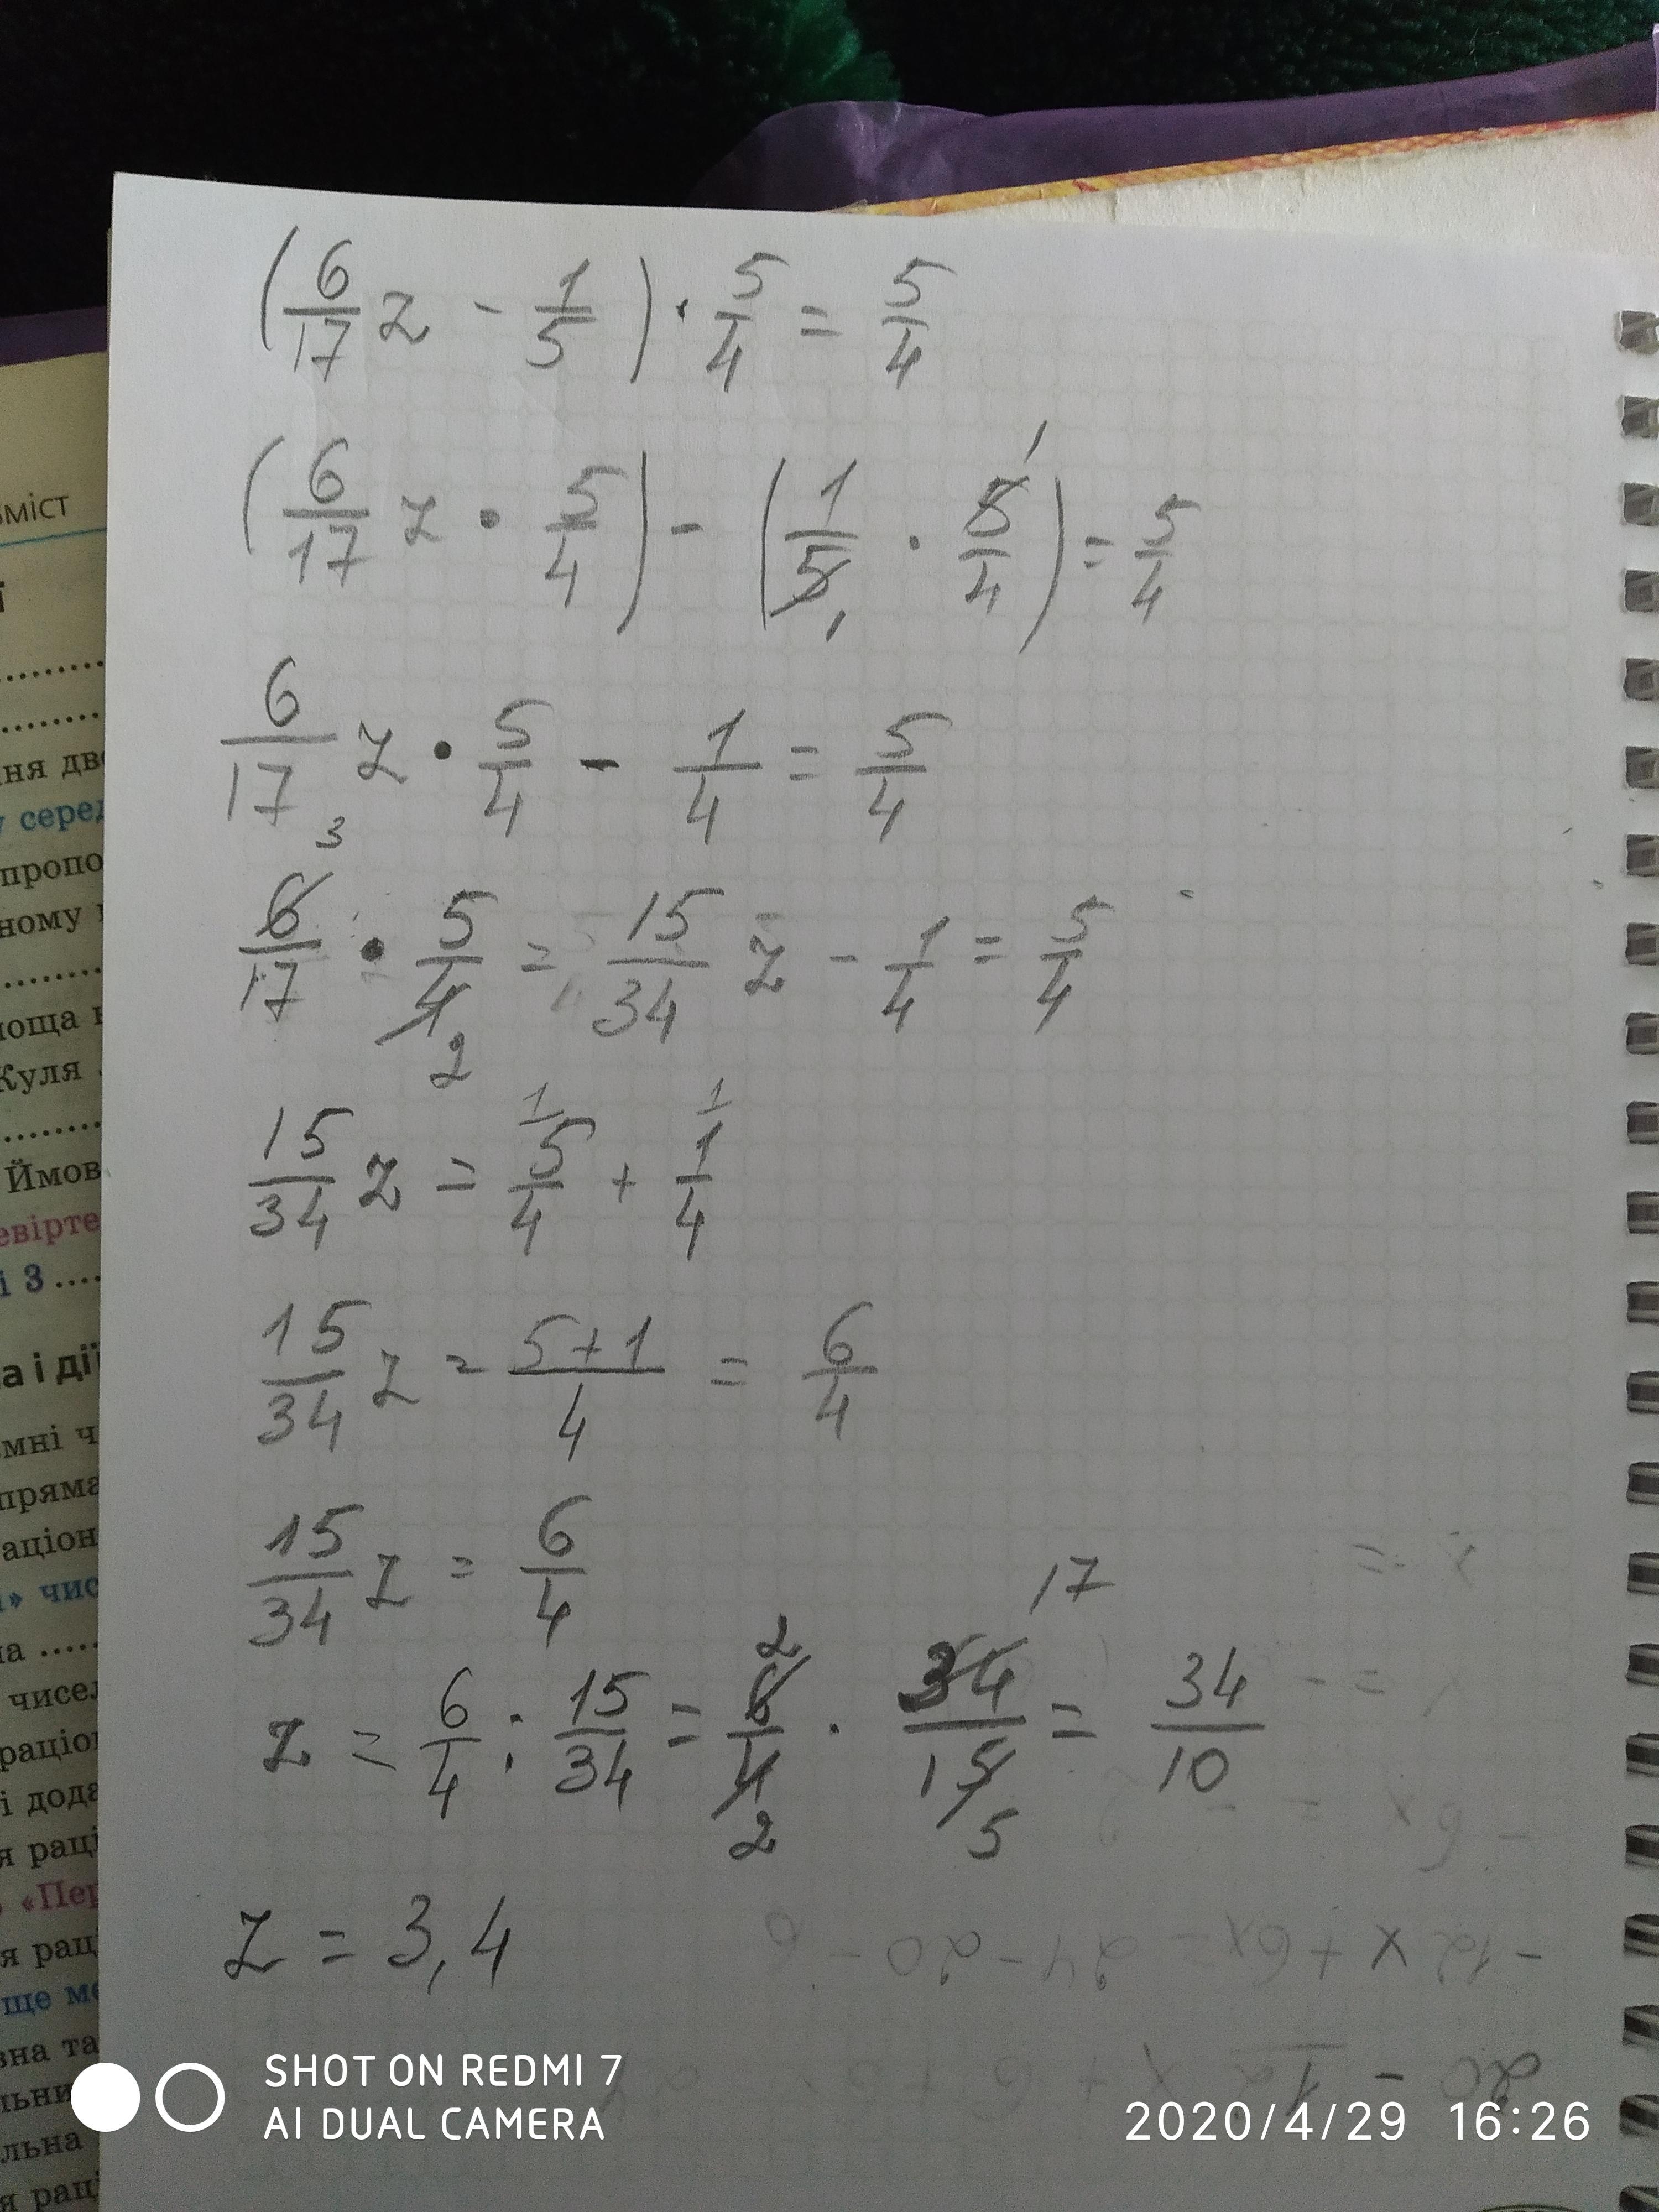 (6/17 z - 1/5) · 5/4 = 5/4
(6/17 z · 5/4) - (1/5 1 · 5/4 1) = 5/4
6/17 z · 5/4 - 1/4 = 5/4
6 3/17 · 5/4 2 = 15/34 z - 1/4 = 5/4
15/34 z = 5/4 1 + 1/4 1
15/34 z = 5+1/4 = 6/4
15/34 z = 6/4
z = 6/4 : 15/34 = 6 2/4 2 · 34 17/15 5 = 34/10
z = 3,4
зміст
ї
ня дво
у серед
пропо
ному
лоща
Куля
Ймов
евірте
і 3
а і дії
мні ч
пряма
аціон
» чис
на
чисел
раціон
і дода
я раці
«Пер
я раці
ще ме
вна та
льни
льна
я раці
-12x + 6x = 24 - 20 - 6
SHOT ON REDMI 7
AI DUAL CAMERA
2020/4/29 16:26